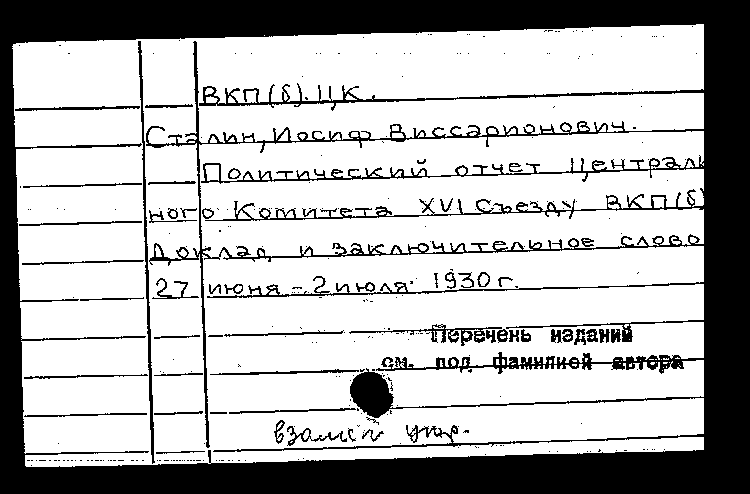 ВКП(б). ЦК.
Сталин, Иосиф Виссарионович.
Политический отчет Централь
ного Комитета XVI Съезду ВКП(б)
Доклад и заключительное слово
27 июня - 2 июля 1930 г.
Перечень изданий
см. под фамилией автора